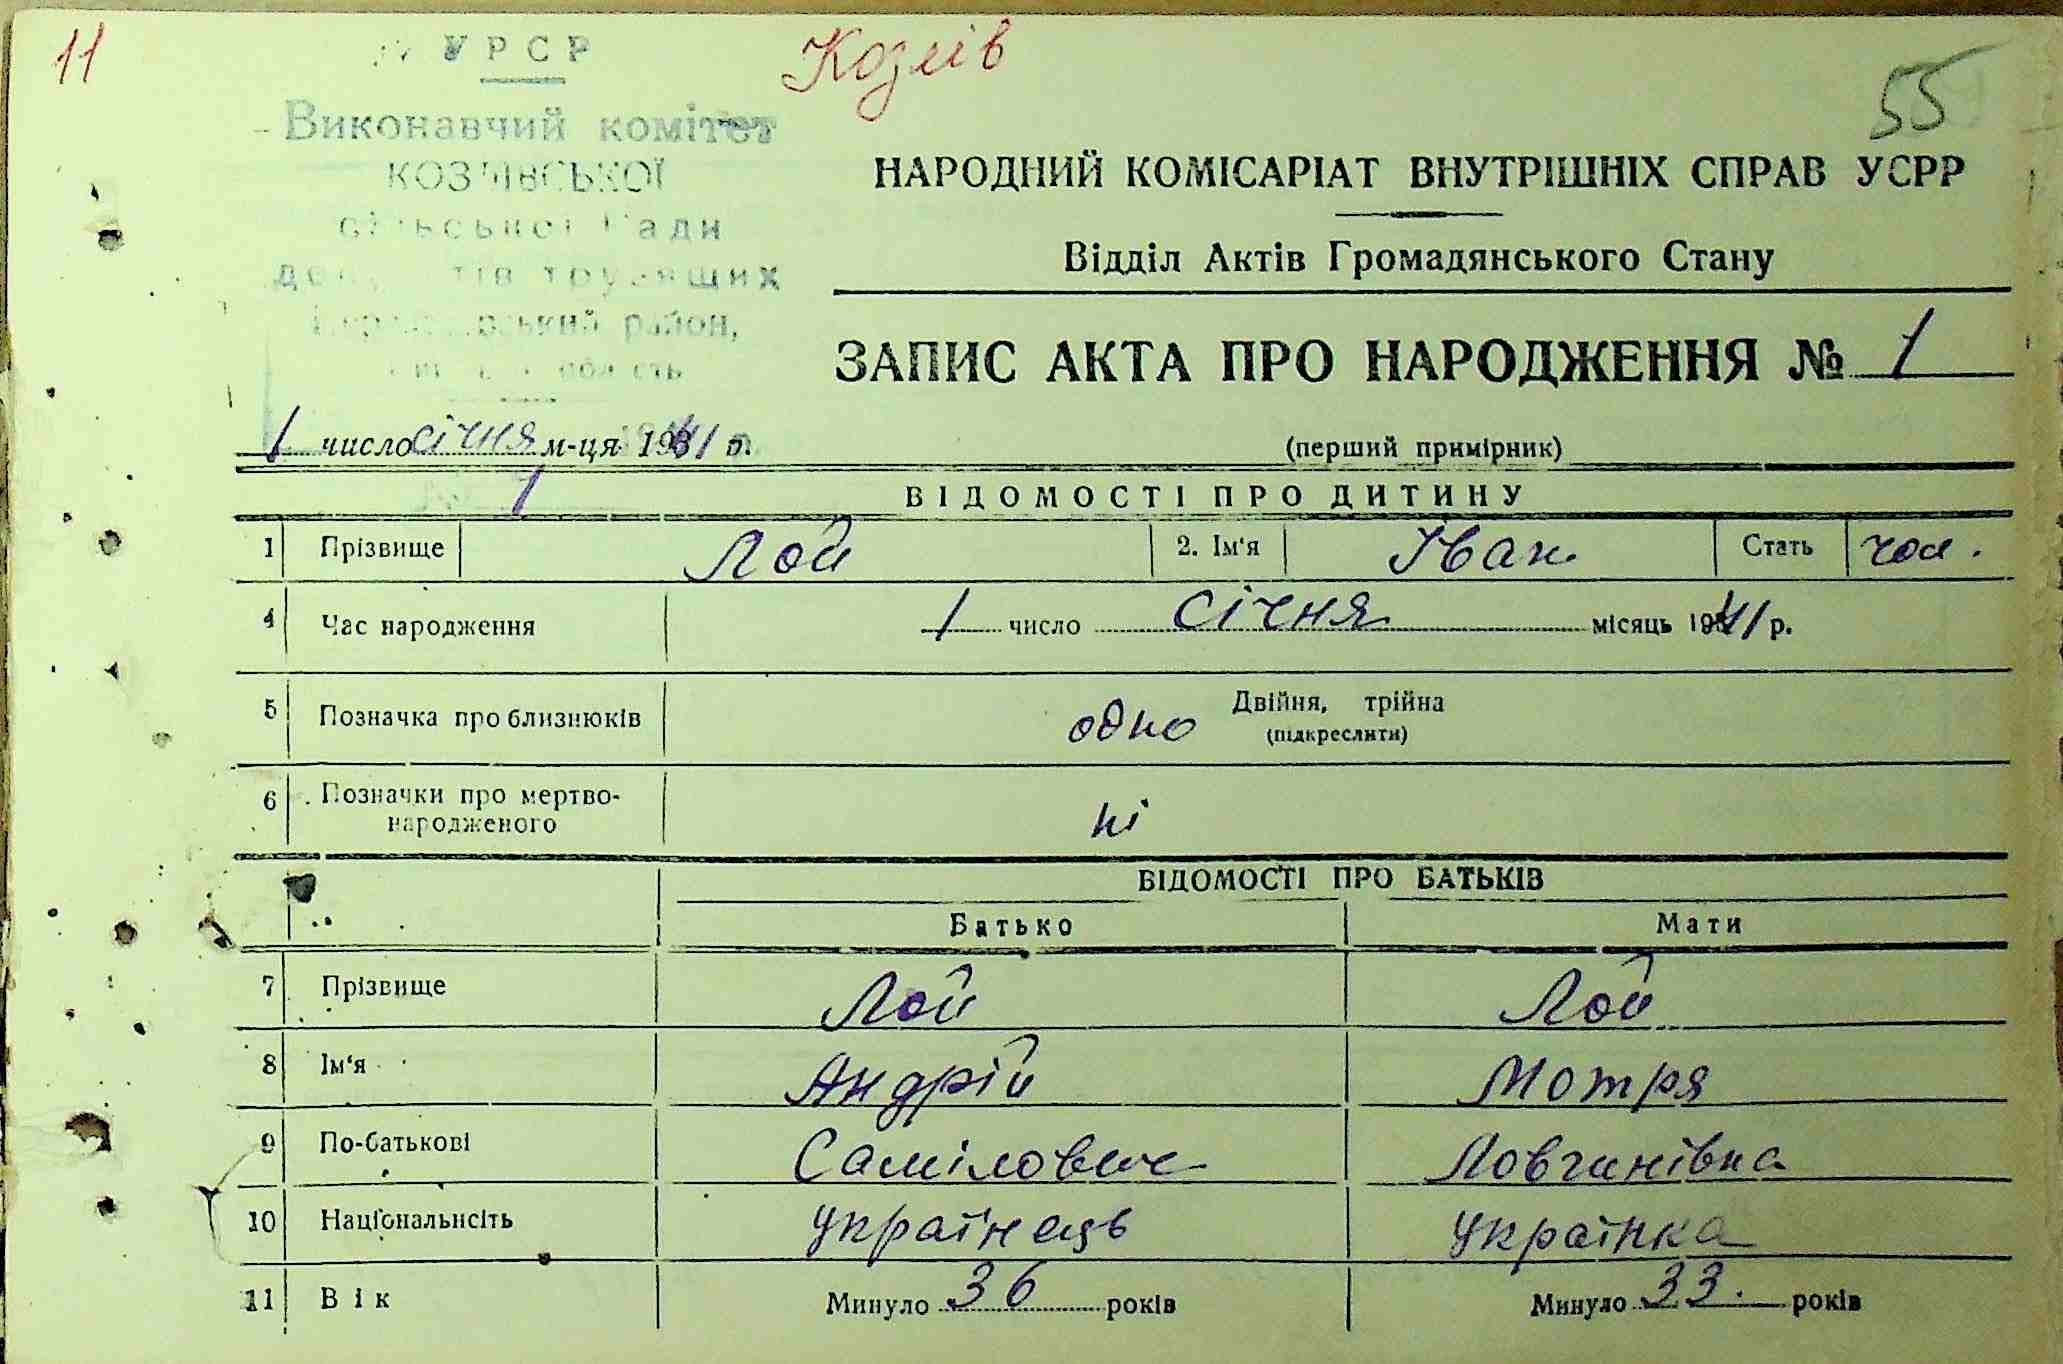 11
УРСР
Козлів
55
Виконавчий комітет
КОЗЛІВСЬКОЇ
сільської Ради
депутатів трудящих
район,
область
НАРОДНИЙ КОМІСАРІАТ ВНУТРІШНІХ СПРАВ УСРР
Відділ Актів Громадянського Стану
ЗАПИС АКТА ПРО НАРОДЖЕННЯ № 1
1 число січня м-ця 1941 р.
(перший примірник)
1
ВІДОМОСТІ ПРО ДИТИНУ
1 Прізвище Лой 2. Ім'я Іван Стать чол.
4 Час народження 1 число січня місяць 1941 р.
5 Позначка про близнюків одно Двійня, трійня
(підкреслити)
6 Позначки про мертво-
народженого ні
ВІДОМОСТІ ПРО БАТЬКІВ
Батько Мати
7 Прізвище Лой Лой
8 Ім'я Андрій Мотря
9 По-батькові Самілович
10 Національність українець українка
11 Вік Минуло 36 років Минуло 33. років